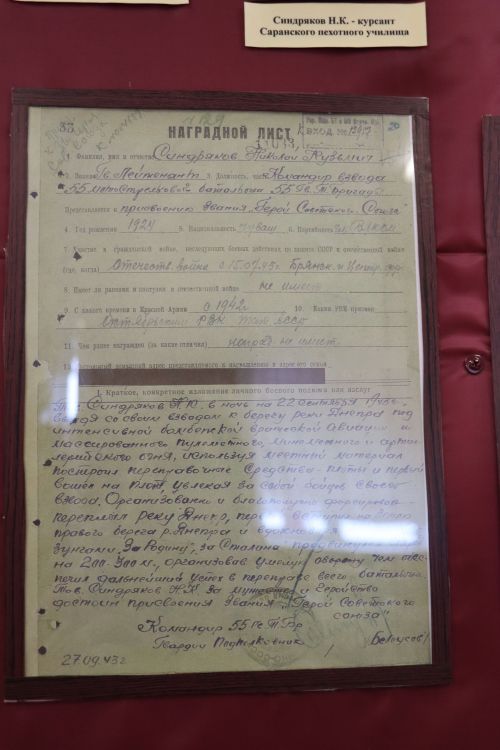 Синдряков Н.К. - курсант
Саранского пехотного училища
33
20
НАГРАДНОЙ ЛИСТ
ВХОД. №
1. Фамилия, имя и отчество Синдряков Николай Кузьмич
2. Звание Гв. Лейтенант 3. Должность, часть Командир взвода
55 мотострелкового батальона 55 Гв. Т. бригады
Представляется к присвоению звания "Герой Советского Союза"
4. Год рождения 1924 5. Национальность чуваш 6. Партийность
7. Участие в гражданской войне, последующих боевых действиях по защите СССР и отечественной войне
(где, когда) Отечеств. война с 15.07.43 г. Брянск. и Центр.
8. Имеет ли ранения и контузии в отечественной войне не имеет
9. С какого времени в Красной Армии с 1942 г. 10. Каким РВК призван
РВК
11. Чем ранее награжден (за какие отличия) наград не имеет.
12. Постоянный домашний адрес представляемого к награждению и адрес его семьи
I. Краткое, конкретное изложение личного боевого подвига или заслуг
Тов. Синдряков Н.К. в ночь на 22 сентября 1943 г.
со своим взводом к берегу реки Днепра под
интенсивной бомбежкой вражеской авиации и
массированного пулеметного, минометного и артил-
лерийского огня, используя местный материал
построил переправочные средства - плоты и первый
вошел на плот увлекая за собой бойцов своего
взвода. Организованно и благополучно форсировал
реку Днепр,
правого берега р. Днепра и
"За Родину", за Сталина
на 200-300 м., организовав умелую оборону тем обес-
печил дальнейший успех в переправе всего батальона.
Тов. Синдряков Н.К. за мужество и геройство
достоин присвоения звания "Герой Советского
союза"
Командир 55 Гв. Т. Бр.
Гвардии Подполковник /Белоусов/
27.09.43 г.